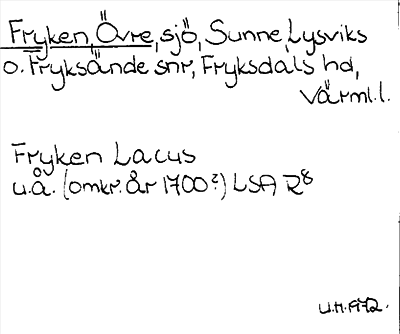 Fryken, Övre, sjö, Sunne, Lysviks
o. Fryksände snr, Fryksdals hd,
Värml.l.
Fryken Lacus
u.å. (omkr. år 1700?) LSA R8
U.H. 1972.